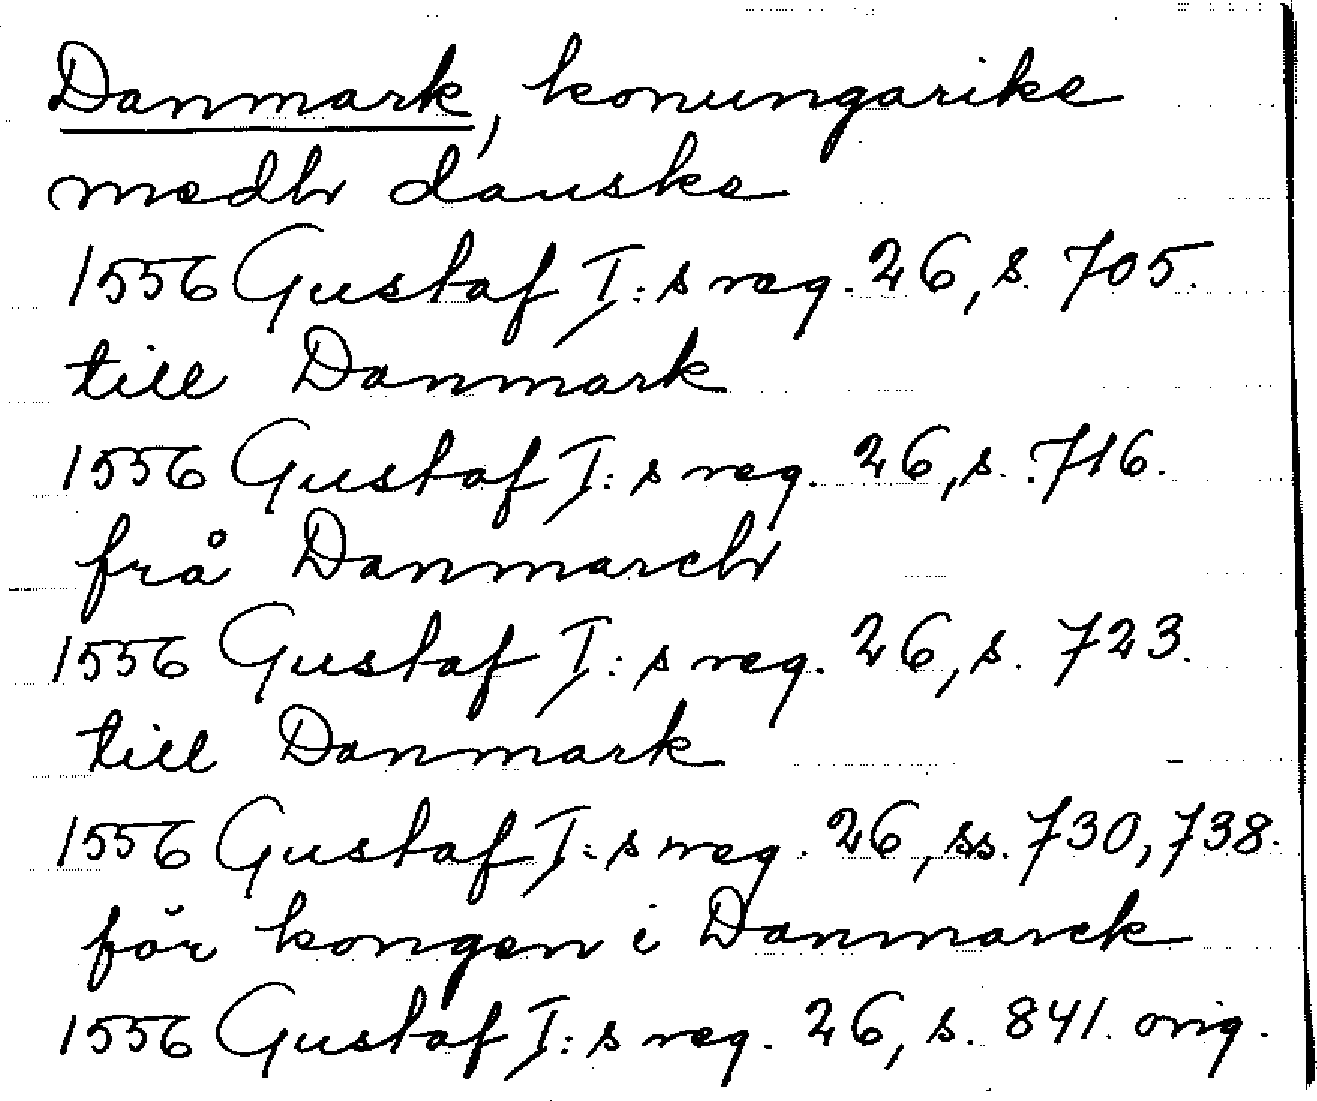 Danmark, konungarike
medh danske
1556 Gustaf I:s reg. 26, s. 705.
till Danmark
1556 Gustaf I:s reg. 26, s. 716.
frå Danmarch
1556 Gustaf I:s reg. 26, s. 723.
till Danmark
1556 Gustaf I:s reg. 26, ss. 730, 738.
för kongen i Danmarck
1556 Gustaf I:s reg. 26, s. 841. orig.